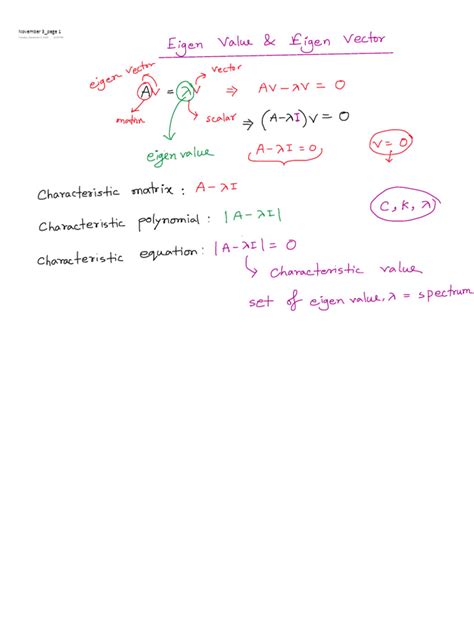 November 3_page 1
Eigen Value & Eigen Vector
eigen vector
vector
AV = λV ⇒ AV - λV = 0
matrix
scalar ⇒ (A-λI)V = 0
eigen value
A-λI = 0
V = 0
Characteristic matrix : A-λI
C, K, λ
Characteristic polynomial : |A-λI|
Characteristic equation : |A-λI| = 0
↳ Characteristic value
set of eigen value, λ = spectrum